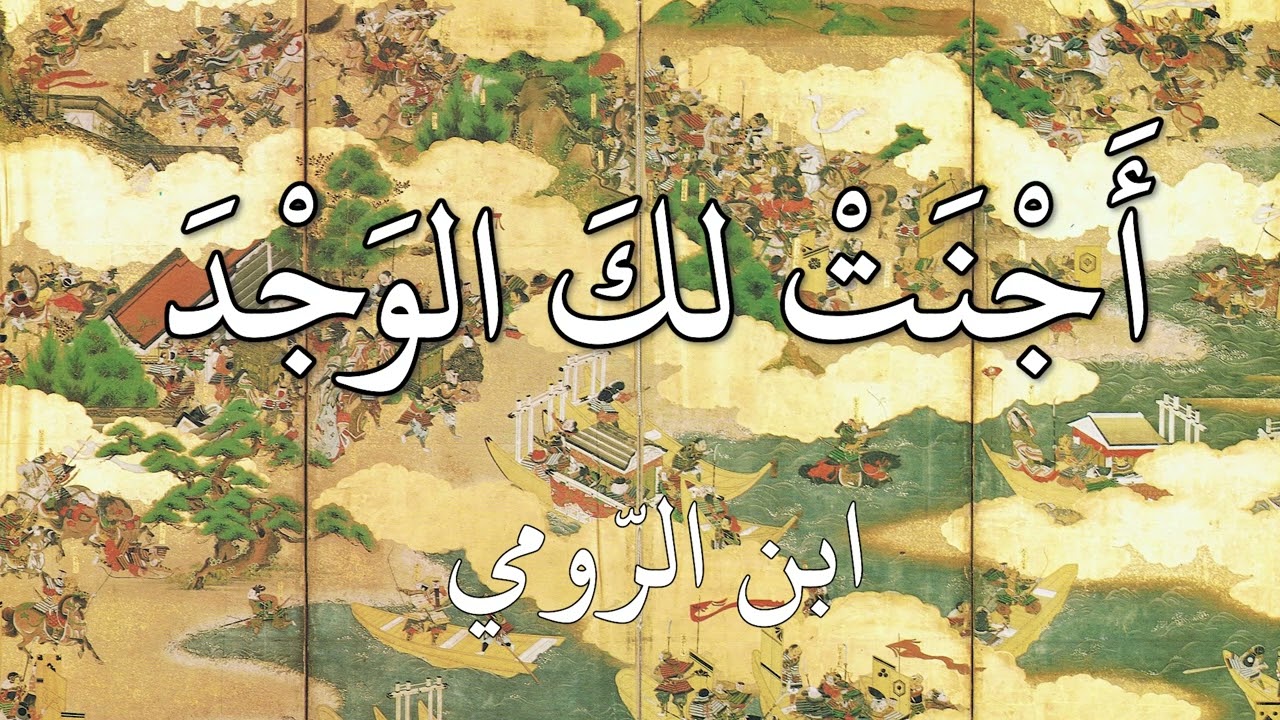 أَجْنَتْ لكَ الوَجْدَ
ابن الرّومي